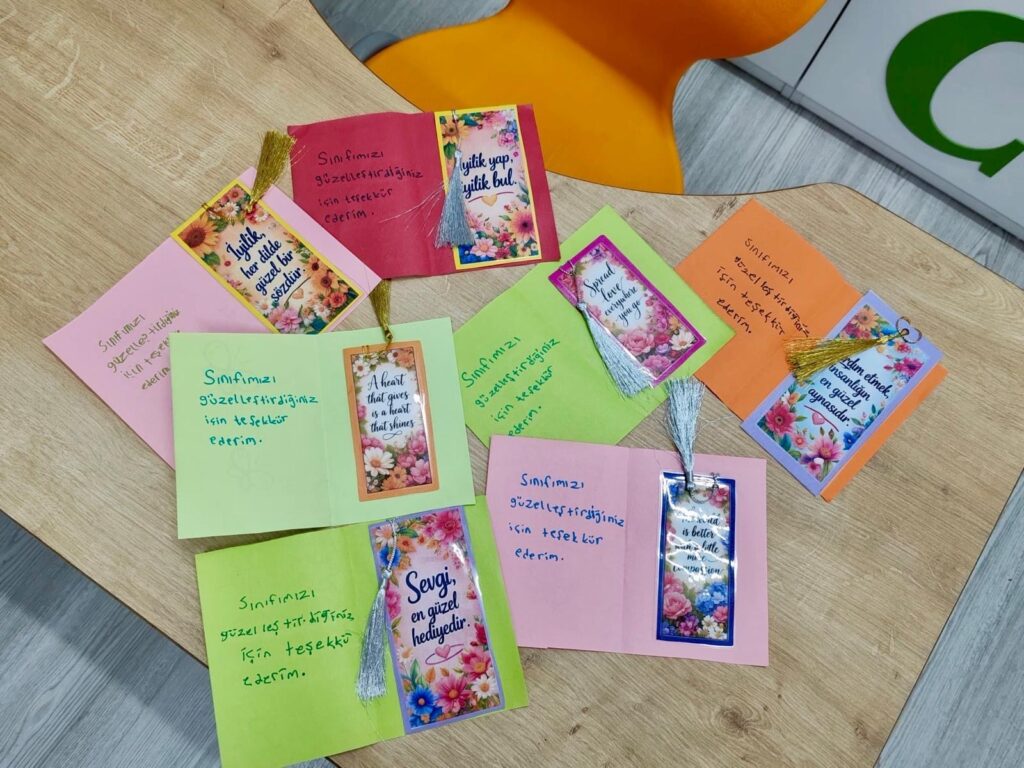 Sınıfımızı
güzelleştirdiğiniz
için teşekkür
ederim.
iyilik yap,
iyilik bul.
İyilik,
her dilde
güzel bir
sözdür.
Sınıfımızı
güzelleştirdiğiniz
için teşekkür
ederim.
Spread
love
everywhere
you go
Sınıfımızı
güzelleştirdiğiniz
için teşekkür
ederim.
Sınıfımızı
güzelleştirdiğiniz
için teşekkür
ederim.
etmek,
insanlığın
en güzel
aynasıdır.
Sınıfımızı
güzelleştirdiğiniz
için teşekkür
ederim.
A heart
that gives
is a heart
that shines
Sınıfımızı
güzelleştirdiğiniz
için teşekkür
ederim.
is better
with a little
more
compassion
Sınıfımızı
güzelleştirdiğiniz
için teşekkü
ederim.
Sevgi,
en güzel
hediyedir.